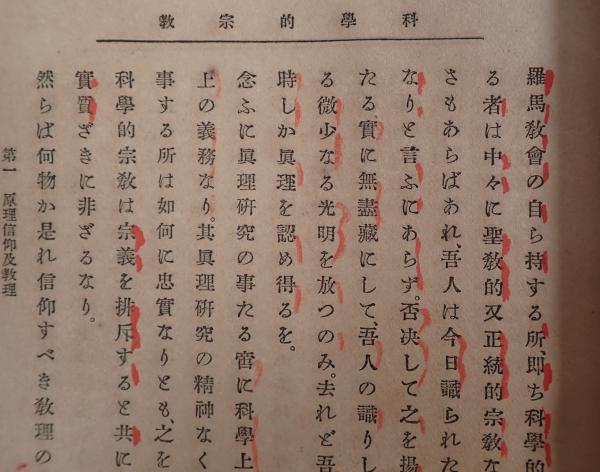 科學的宗教
羅馬敎會の自ら持する所、卽ち科學的
る者は中々に聖敎的又正統的宗敎な
さもあらばあれ、吾人は今日識られた
なりと言ふにあらず。否決して之を揚
たる、實に無盡藏にして、吾人の識りし
る微少なる光明を放つのみ。去れど吾
時しか眞理を認め得るを。
念ふに眞理硏究の事たる啻に科學上
上の義務なり。其眞理硏究の精神なく
事する所は如何に忠實なりとも、之を
科學的宗敎は宗義を排斥すると共に
實質ざきに非ざるなり。
然らば何物か是れ信仰すべき敎理の
第一 原理信仰及敎理